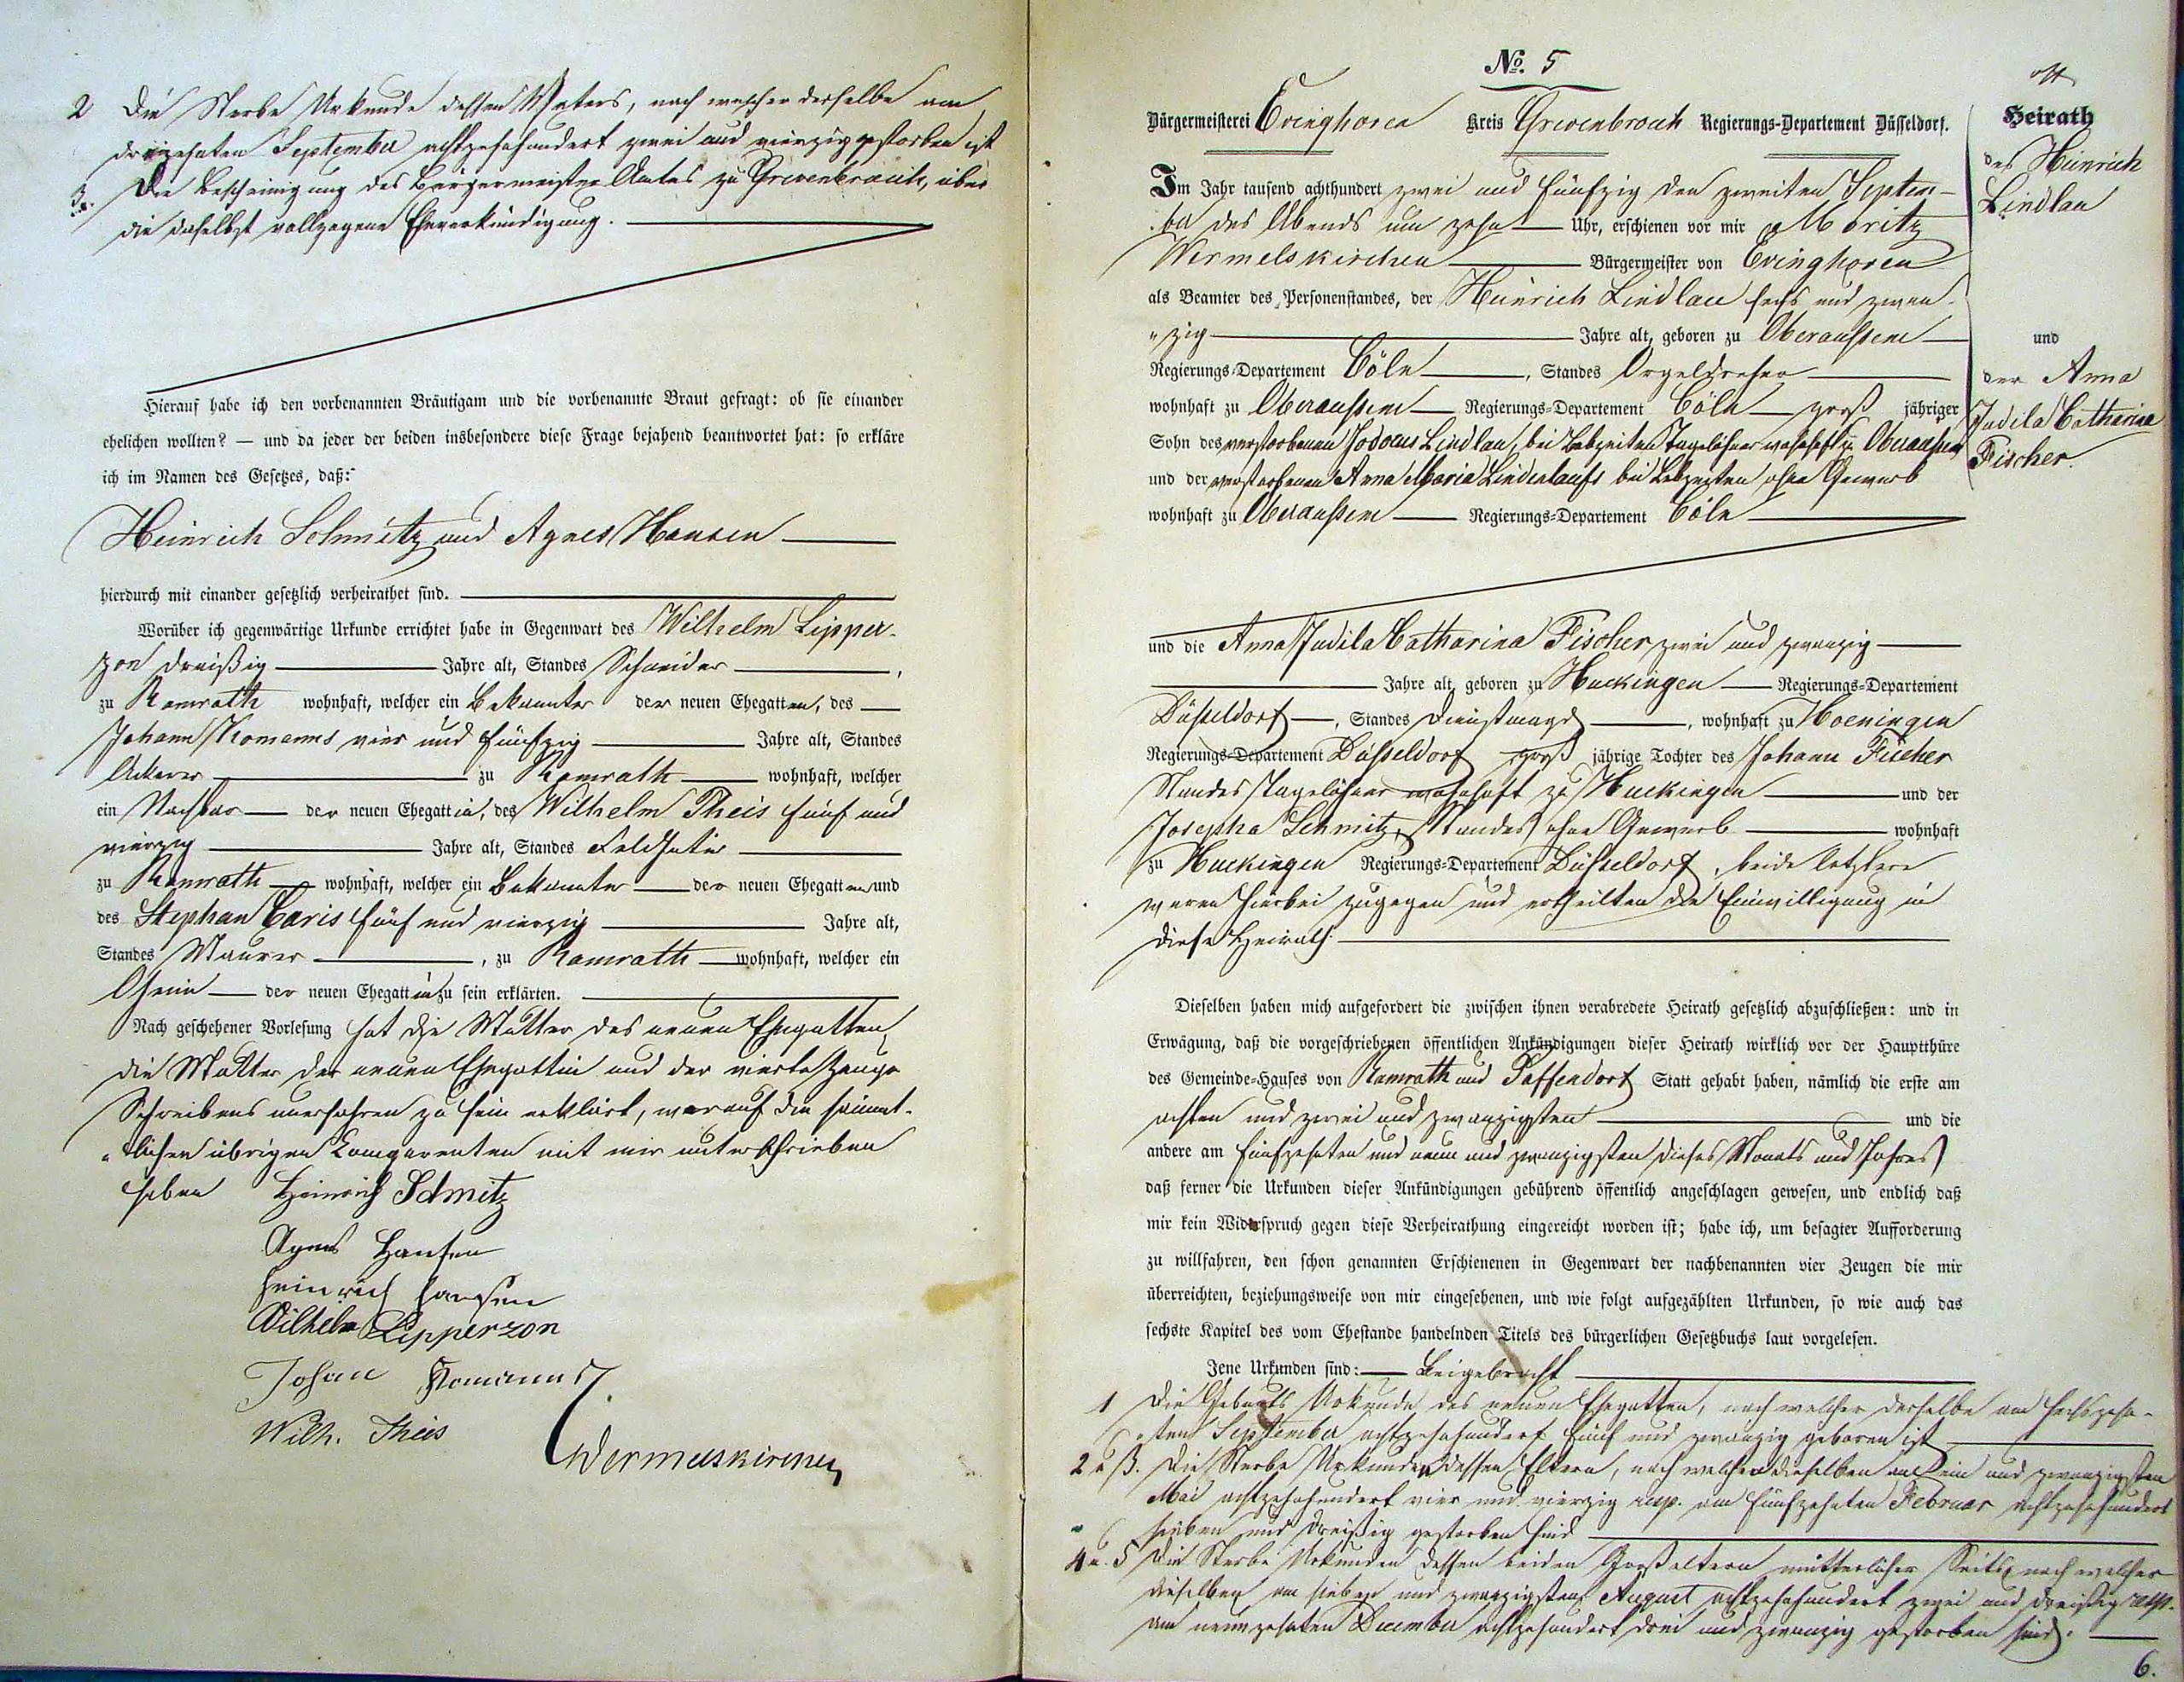 2 Die Sterbe Urkunde dessen Vaters, nach welcher derselbe am
dreizehnten September achtzehnhundert zwei und vierzig gestorben ist
3. Die Bescheinigung des Bürgermeister Amtes zu Grevenbroich, über
die daselbst vollzogene Eheverkündigung.
Hierauf habe ich den vorbenannten Bräutigam und die vorbenannte Braut gefragt: ob sie einander
ehelichen wollten? — und da jeder der beiden insbesondere diese Frage bejahend beantwortet hat: so erkläre
ich im Namen des Gesetzes, daß:
Heinrich Schmitz und Agnes Hansen
hierdurch mit einander gesetzlich verheirathet sind.
Worüber ich gegenwärtige Urkunde errichtet habe in Gegenwart des Wilhelm Lipper-
zon dreißig Jahre alt, Standes Schneider,
zu Ramrath wohnhaft, welcher ein Bekannter der neuen Ehegatten, des
Johann Komanns vier und fünfzig Jahre alt, Standes
Ackerer zu Ramrath wohnhaft, welcher
ein Nachbar der neuen Ehegattin, des Wilhelm Theis fünf und
vierzig Jahre alt, Standes Feldhüter
zu Ramrath wohnhaft, welcher ein Bekannter der neuen Ehegatten und
des Stephan Caris fünf und vierzig Jahre alt,
Standes Maurer, zu Ramrath wohnhaft, welcher ein
Oheim der neuen Ehegattin zu sein erklärten.
Nach geschehener Vorlesung hat die Mutter des neuen Ehegatten,
die Mutter der neuen Ehegattin und der vierte Zeuge
Schreibens unerfahren zu sein erklärt, worauf die sämmt-
lichen übrigen Comparenten mit mir unterschrieben
haben Heinrich Schmitz
Agnes Hansen
Heinrich Hansen
Wilhelm Lipperzon
Johan Komanns
Wilh. Theis
Wermelskirchen
No. 5
Bürgermeisterei Evinghoven Kreis Grevenbroich Regierungs-Departement Düsseldorf.
Heirath
des Heinrich
Lindlau
und
der Anna
Judila Catharina
Fischer.
Im Jahr tausend achthundert zwei und fünfzig den zweiten Septem-
ber des Abends um zehn Uhr, erschienen vor mir Moritz
Wermelskirchen Bürgermeister von Evinghoven
als Beamter des Personenstandes, der Heinrich Lindlau sechs und zwan-
zig Jahre alt, geboren zu Oberaußem
Regierungs-Departement Cöln, Standes Orgeldreher
wohnhaft zu Oberaußem Regierungs-Departement Cöln groß jähriger
Sohn des verstorbenen Jodocus Lindlau, bei Lebzeiten Tagelöhner wohnhaft zu Oberaußem
und der verstorbenen Anna Maria Lindenlaufs bei Lebzeiten ohne Gewerb
wohnhaft zu Oberaußem Regierungs-Departement Cöln
und die Anna Judila Catharina Fischer zwei und zwanzig
Jahre alt, geboren zu Huckingen Regierungs-Departement
Düsseldorf, Standes Dienstmagd, wohnhaft zu Hoeningen
Regierungs-Departement Düsseldorf groß jährige Tochter des Johann Fischer
Standes Tagelöhner wohnhaft zu Huckingen und der
Josepha Schmitz, Standes ohne Gewerb wohnhaft
zu Huckingen Regierungs-Departement Düsseldorf, beide letztere
waren hierbei zugegen und ertheilten die Einwilligung in
diese Heirath.
Dieselben haben mich aufgefordert die zwischen ihnen verabredete Heirath gesetzlich abzuschließen: und in
Erwägung, daß die vorgeschriebenen öffentlichen Ankündigungen dieser Heirath wirklich vor der Hauptthüre
des Gemeinde-Hauses von Ramrath und Paffendorf Statt gehabt haben, nämlich die erste am
achten und zwei und zwanzigsten und die
andere am fünfzehnten und neun und zwanzigsten dieses Monats und Jahres
daß ferner die Urkunden dieser Ankündigungen gebührend öffentlich angeschlagen gewesen, und endlich daß
mir kein Widerspruch gegen diese Verheirathung eingereicht worden ist; habe ich, um besagter Aufforderung
zu willfahren, den schon genannten Erschienenen in Gegenwart der nachbenannten vier Zeugen die mir
überreichten, beziehungsweise von mir eingesehenen, und wie folgt aufgezählten Urkunden, so wie auch das
sechste Kapitel des vom Ehestande handelnden Titels des bürgerlichen Gesetzbuchs laut vorgelesen.
Jene Urkunden sind: Beigebracht
1 Die Geburts Urkunde des neuen Ehegatten, nach welcher derselbe am sechszehn-
ten September achtzehnhundert fünf und zwanzig geboren ist
2 u 3. Die Sterbe Urkunden dessen Eltern, nach welchen dieselben am ein und zwanzigsten
Mai achtzehnhundert vier und vierzig resp. am fünfzehnten Februar achtzehnhundert
sieben und dreißig gestorben sind
4 u. 5 Die Sterbe Urkunden dessen beiden Großeltern mütterlicher Seits, nach welcher
dieselben am sieben und zwanzigsten August achtzehnhundert zwei und dreißig resp.
am neunzehnten December achtzehnhundert drei und zwanzig gestorben sind.
6.